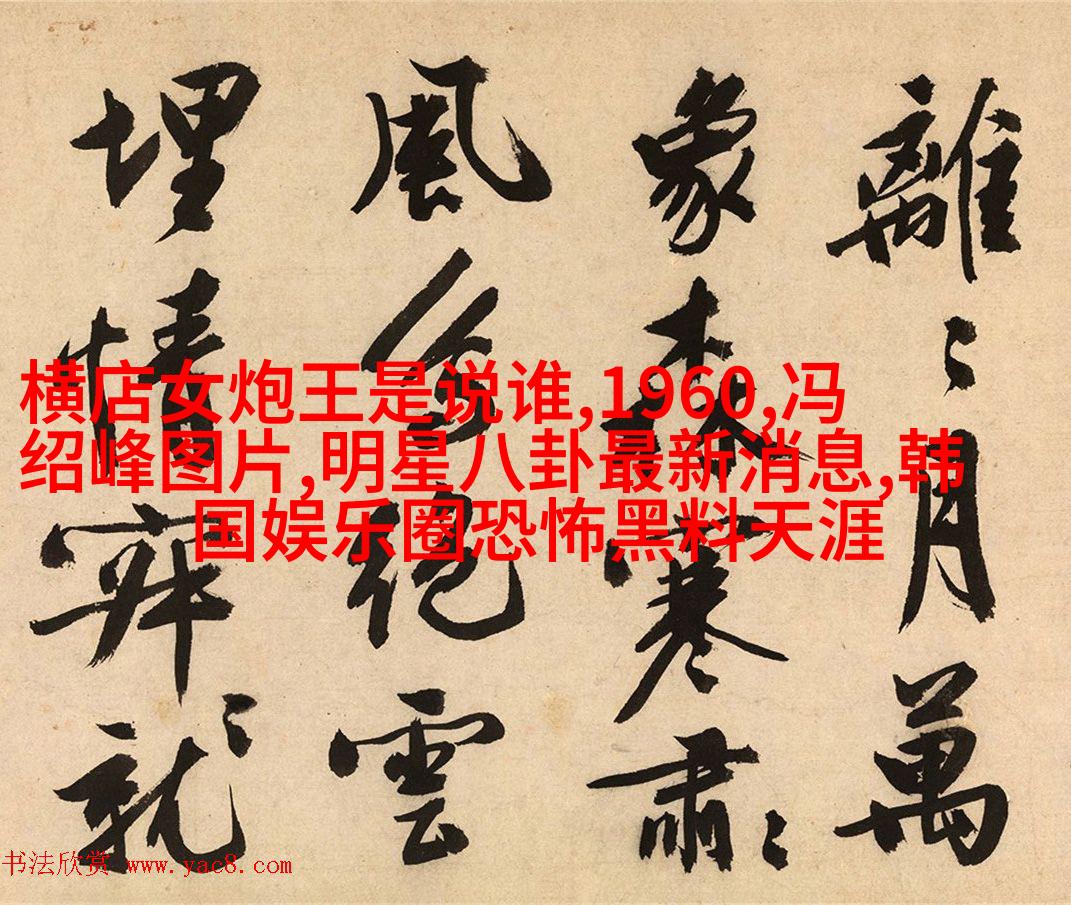 離〻月萬
象森寒肅〻
風絕雲
埋情〻就
横店女炮王是说谁,1960,冯
绍峰图片,明星八卦最新消息,韩
国娱乐圈恐怖黑料天涯
书法欣赏 www.yac8.com